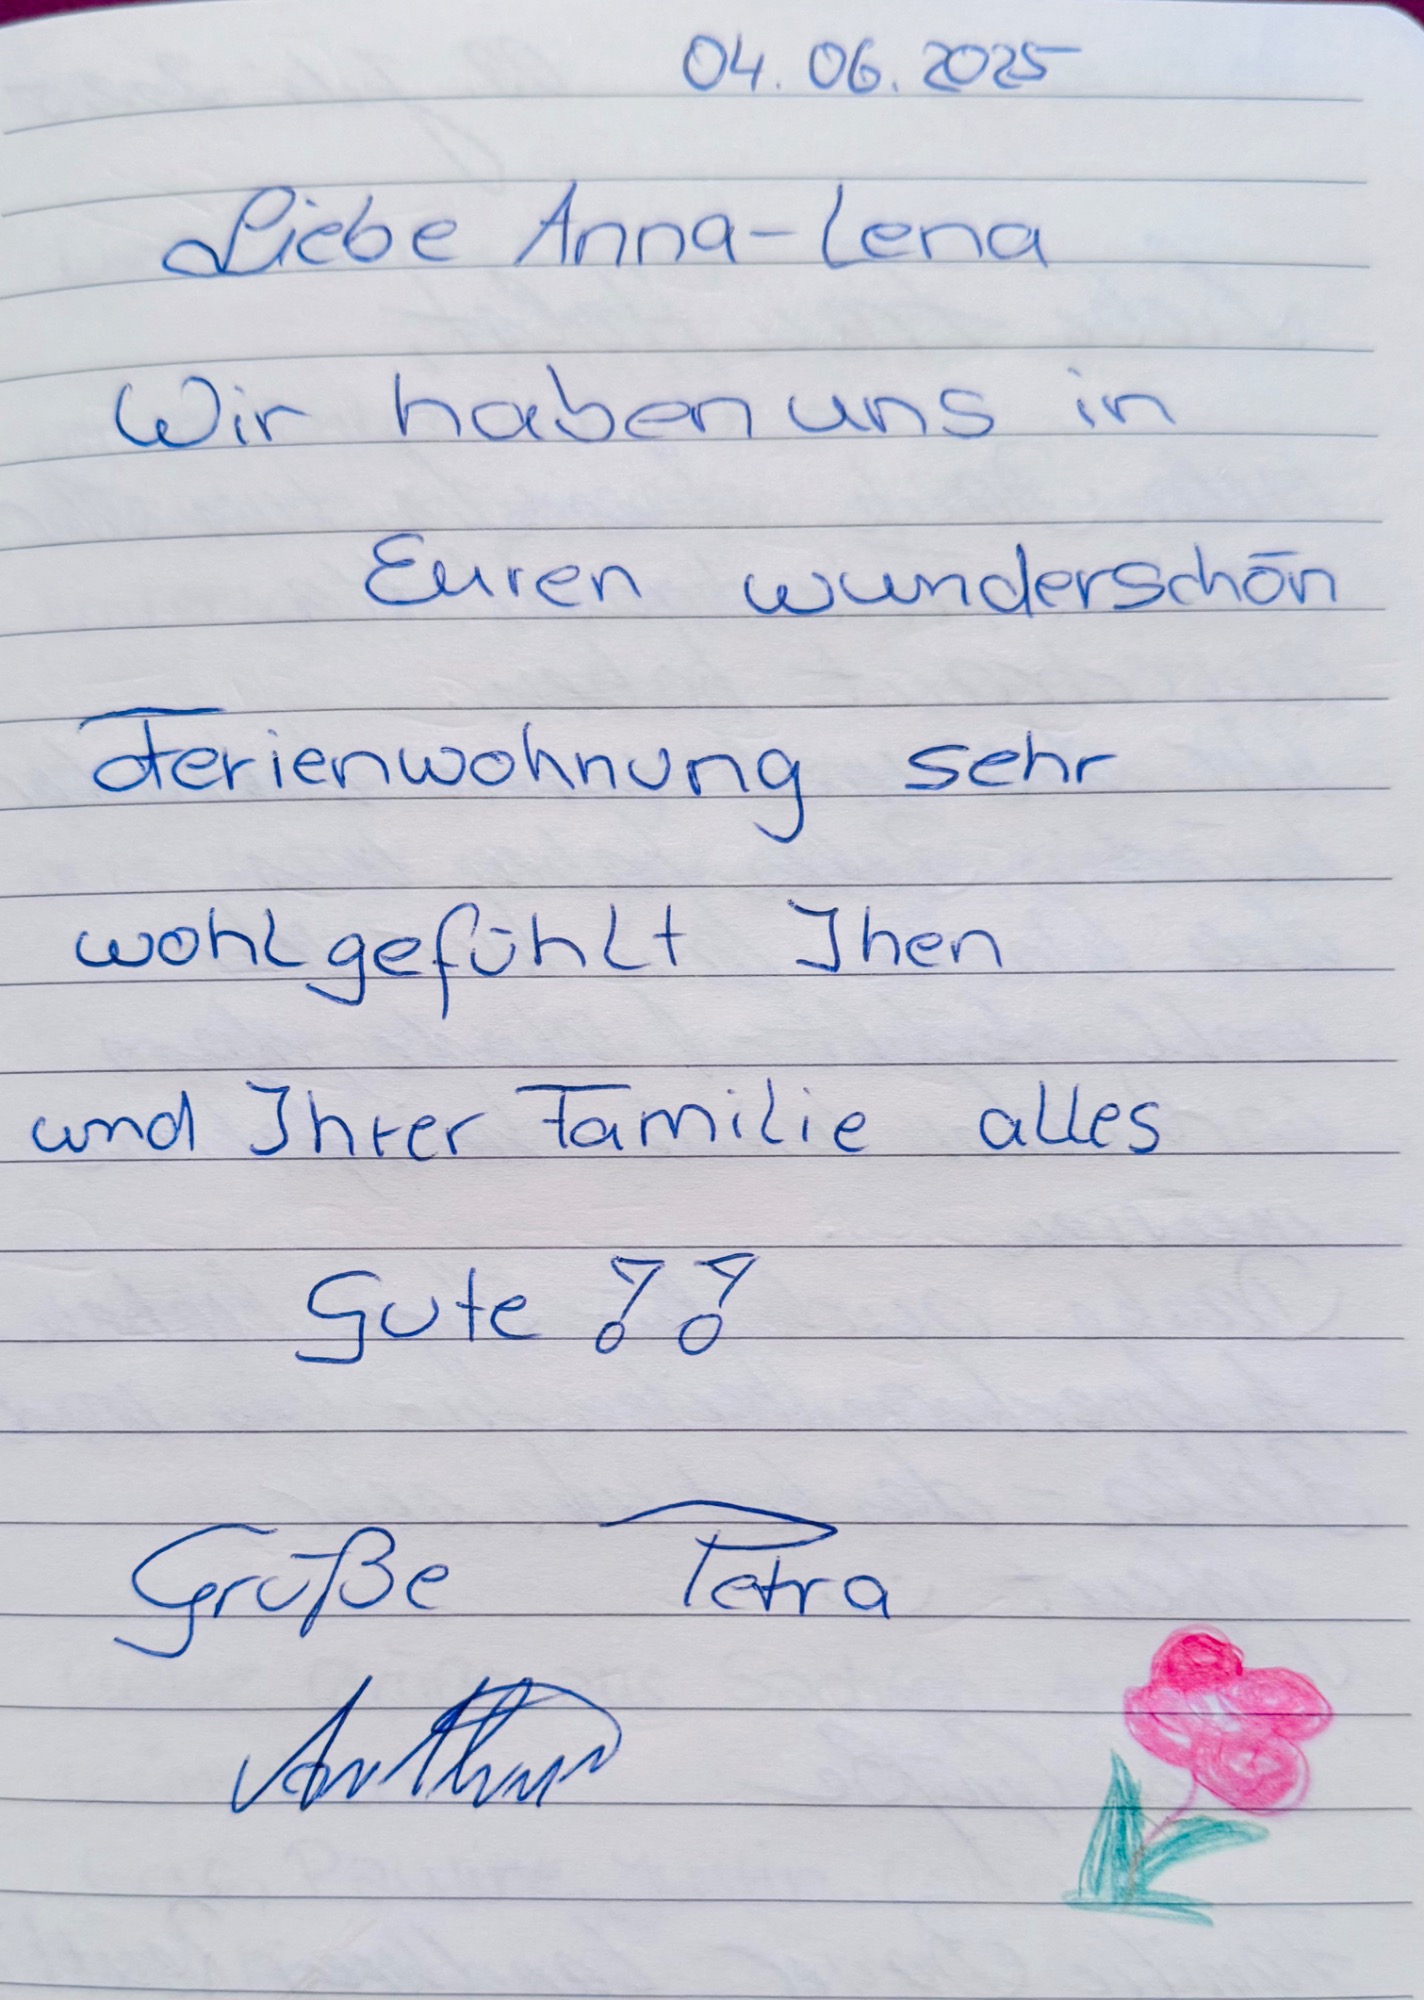 04.06.2025
Liebe Anna-Lena
Wir haben uns in
Euren wunderschön
Ferienwohnung sehr
wohlgefühlt Ihen
und Ihrer Familie alles
Gute !!
Grüße Petra
Arthur